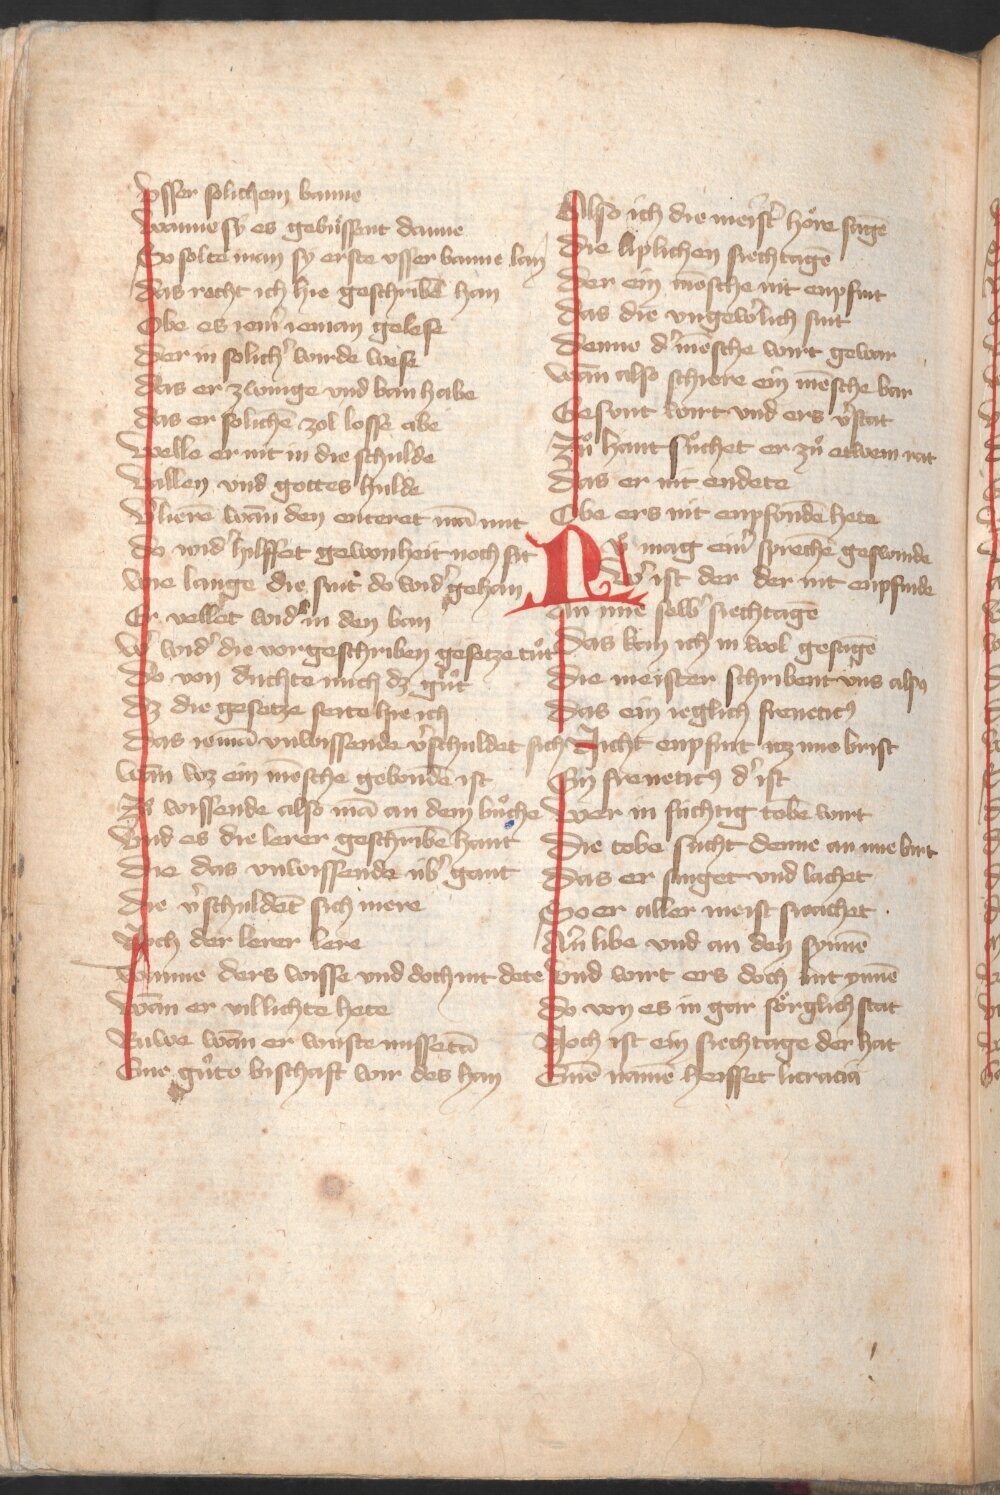 Vsser solichem banne
Wanne sy es gebuͤssent danne
So solte man sy erste vsser banne lan
Das recht ich hie geschribē han
Obe es iem̄ ieman gelese
Der in solich' wirde wese
Das er zwinge vnd ban habe
Das er solichē zol losse abe
Welle er nit in die schulde
Vallen vnd gottes hulde
V'lierē wān den enteret mā nut
Do wid' hilffet gewonheit noch sit
Wie lange die sint do wid' gehan
Er vellet wid' in den ban
W' wid' die vorgeschriben gesetze tuͦt
Do von duchte mich dz guͦt
Dz die gesetze seite hie ich
Das iemā vnwissende v'schuldet sich
Wān wz ein mēsche gebondē ist
Zuͦ wissende also mā an dem buͦche
Vnd es die lerer geschribē hant
Die das vnwissende vb' gant
Die v'schuldēt sich mere
Noch der lerer lere
Wanne ders wisse vnd doch nit dete
Wān er villichte hete
Ruwe wān er wuste missetā
Eine guͦte bischaft wir des han
Also ich die meist' hoͤre sagē
Die liplichen siechtagē
Der ein mēsche nit enpfint
Das die vngew'lich sint
Denne d' mēsche wirt gewar
Wān also schiere ein mēsche bar
Gesont wirt vnd ers v'stat
Zuͦ hant suͦchet er zuͦ etwem rat
Das er nit endete
Obe ers nit enpfondē hete
Nuͦ mag ein' sprechē geswinde
W' ist der der nit enpfinde
An ime selb' siechtagē
Das kan ich in wol gesagē
Die meister schribent vns alsus
Das ein ieglich freneticꝰ
Nicht enpfint wz ime brist
Ein freneticꝰ d' ist
Wer in suchtig tobē wirt
Die tobe sucht denne an ime birt
Das er singet vnd lachet
So er aller meist swachet
An libe vnd an den synnē
Vnd wirt ers doch nit ynnē
Do von es in gar soͤrglich stat
Noch ist ein siechtage der hat
Einē namē heisset litracia